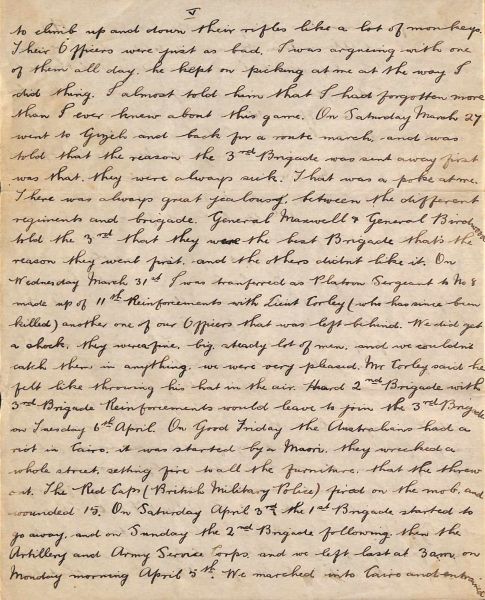 V
to climb up and down their rifles like a lot of monkeys.
Their Officers were just as bad, I was argueing with one
of them all day, he kept on picking at me at the way I
did thing. I almost told him that I had forgotten more
than I ever knew about this game. On Saturday March 27
went to Gizeh and back for a route march, and was
told that the reason the 3rd Brigade was sent away first
was that, they were always sick. That was a poke at me.
There was always great jealousy, between the different
regiments and brigade. General Maxwell & General Birdwood
told the 3rd that they were the best Brigade that's the
reason they went first, and the others didn't like it. On
Wednesday March 31st I was tranferred as Platoon Sergeant to No 8
made up of 11th Reinforcements with Lieut Corley (who has since been
killed) another one of our Officers that was left behind. We did get
a shock, they were a fine, big, steady lot of men, and we couldn't
catch them in anything, we were very pleased, Mr Corley said he
felt like throwing his hat in the air. Heard 2nd Brigade with
3rd Brigade Reinforcements would leave to join the 3rd Brigade
on Tuesday 6th April. On Good Friday the Australians had a
riot in Cairo, it was started by a Maori, they wrecked a
whole street, setting fire to all the furniture, that the threw
out. The Red Caps (British Military Police) fired on the mob, and
wounded 15. On Saturday April 3rd the 1st Brigade started to
go away, and on Sunday the 2nd Brigade following, then the
Artillery and Army Service Corps, and we left last at 3am, on
Monday morning April 5th. We marched into Cairo and entrained